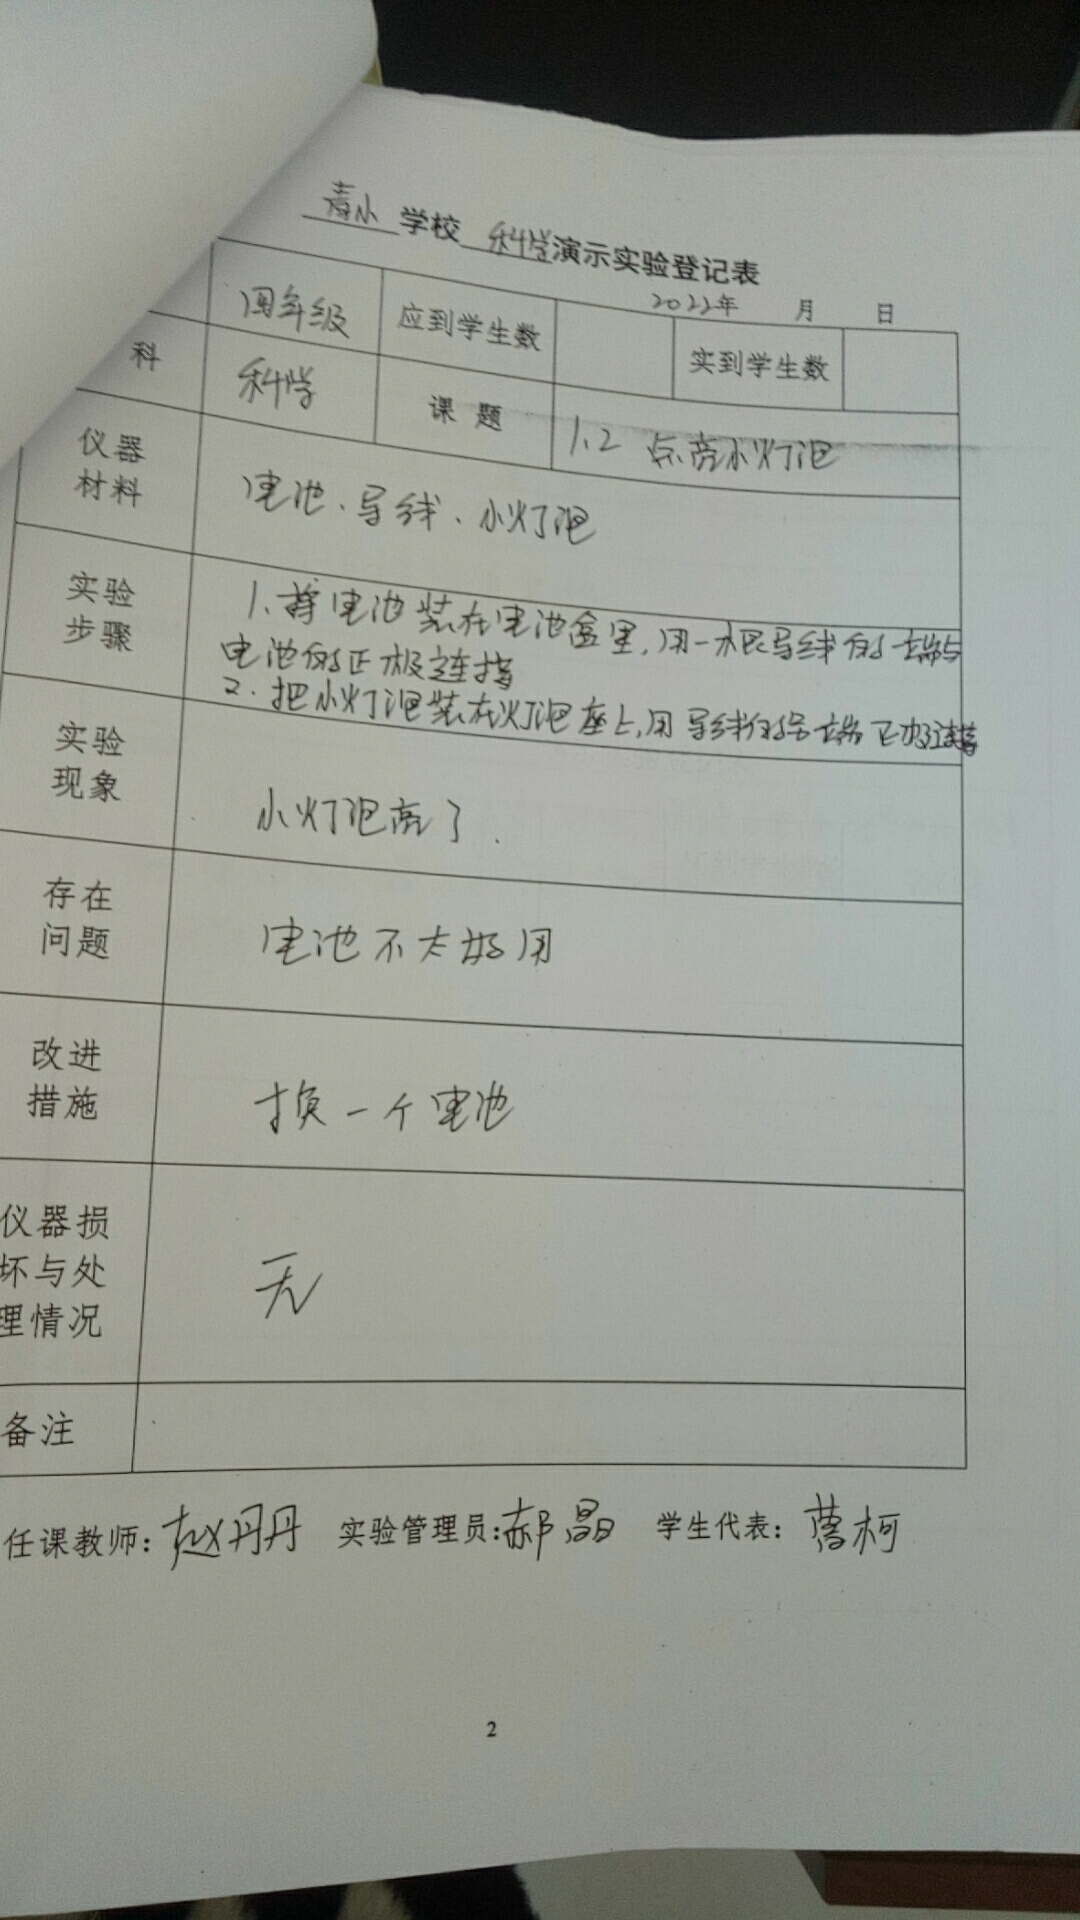 寿小学校 科学演示实验登记表
2022年 月 日
四年级 应到学生数 实到学生数
科 科学 课题 1.2 点亮小灯泡
仪器
材料
电池、导线、小灯泡
实验
步骤
1.将电池装在电池盒里,用一根导线的一端与
电池的正极连接
2.把小灯泡装在灯泡座上,用导线的另一端
连接
实验
现象
小灯泡亮了.
存在
问题
电池不太好用
改进
措施
换一个电池
仪器损
坏与处
理情况
无
备注
任课教师:赵丹丹 实验管理员:郝晶 学生代表:曹柯
2